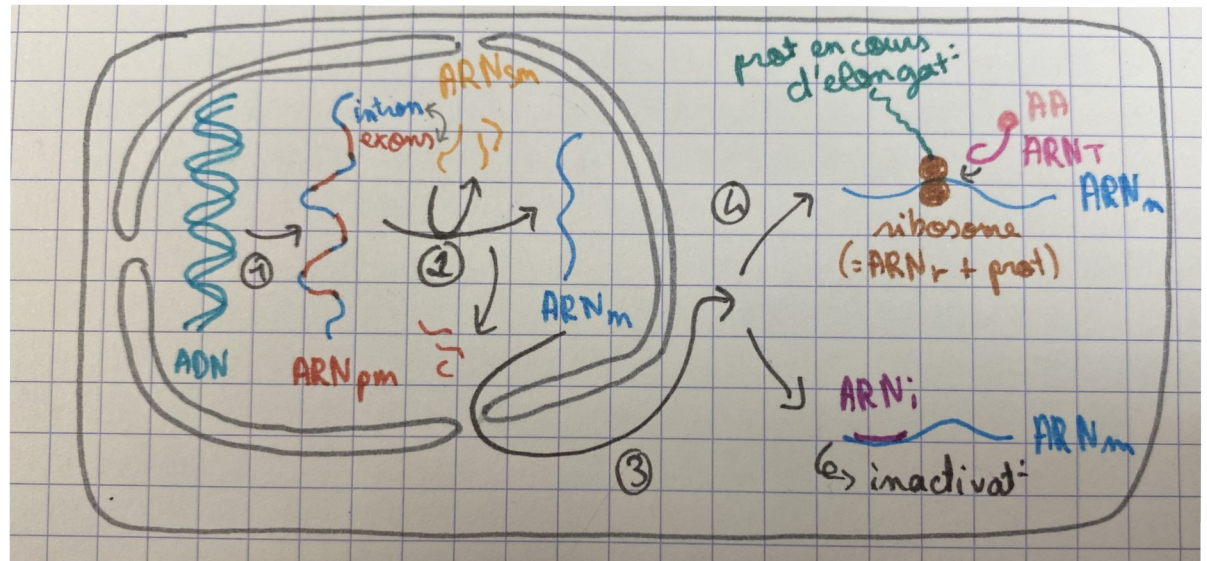 ADN
①
intron
exons
ARNpm
ARNsm
②
ARNm
③
④
prot en cours
d'elongat°
AA
ARNT
ARNm
ribosome
(=ARNr + prot)
ARNi
ARNm
↳ inactivat°